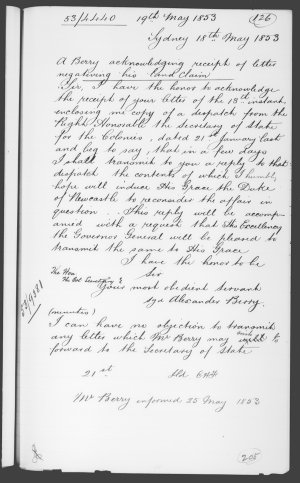 53/4440 19th May 1853 (126)
Sydney 18th May 1853
A Berry acknowledging receipt of letter
negativing his Land Claim
Sir, I have the honor to acknowledge
the receipt of your letter of the 13th instant
enclosing me copy of a despatch from the
Right Honorable the Secretary of State
for the Colonies, dated 21st January last
and beg to say, that in a few days
I shall transmit to you a reply to that
despatch the contents of which I humbly
hope will induce His Grace the Duke
of Newcastle to reconsider the affair in
question. This reply will be accomp-
anied with a request that His Excellency
the Governor General will be pleased to
transmit the same to His Grace
I have the honor to be
The Hon Sir
The Col Secretary &
Your most obedient Servant
sgd Alexander Berry.
(minutes)
I can have no objection to transmit
any letter which Mr Berry may wish to
forward to the Secretary of State
21st
Mr Berry informed 25 May 1853
205